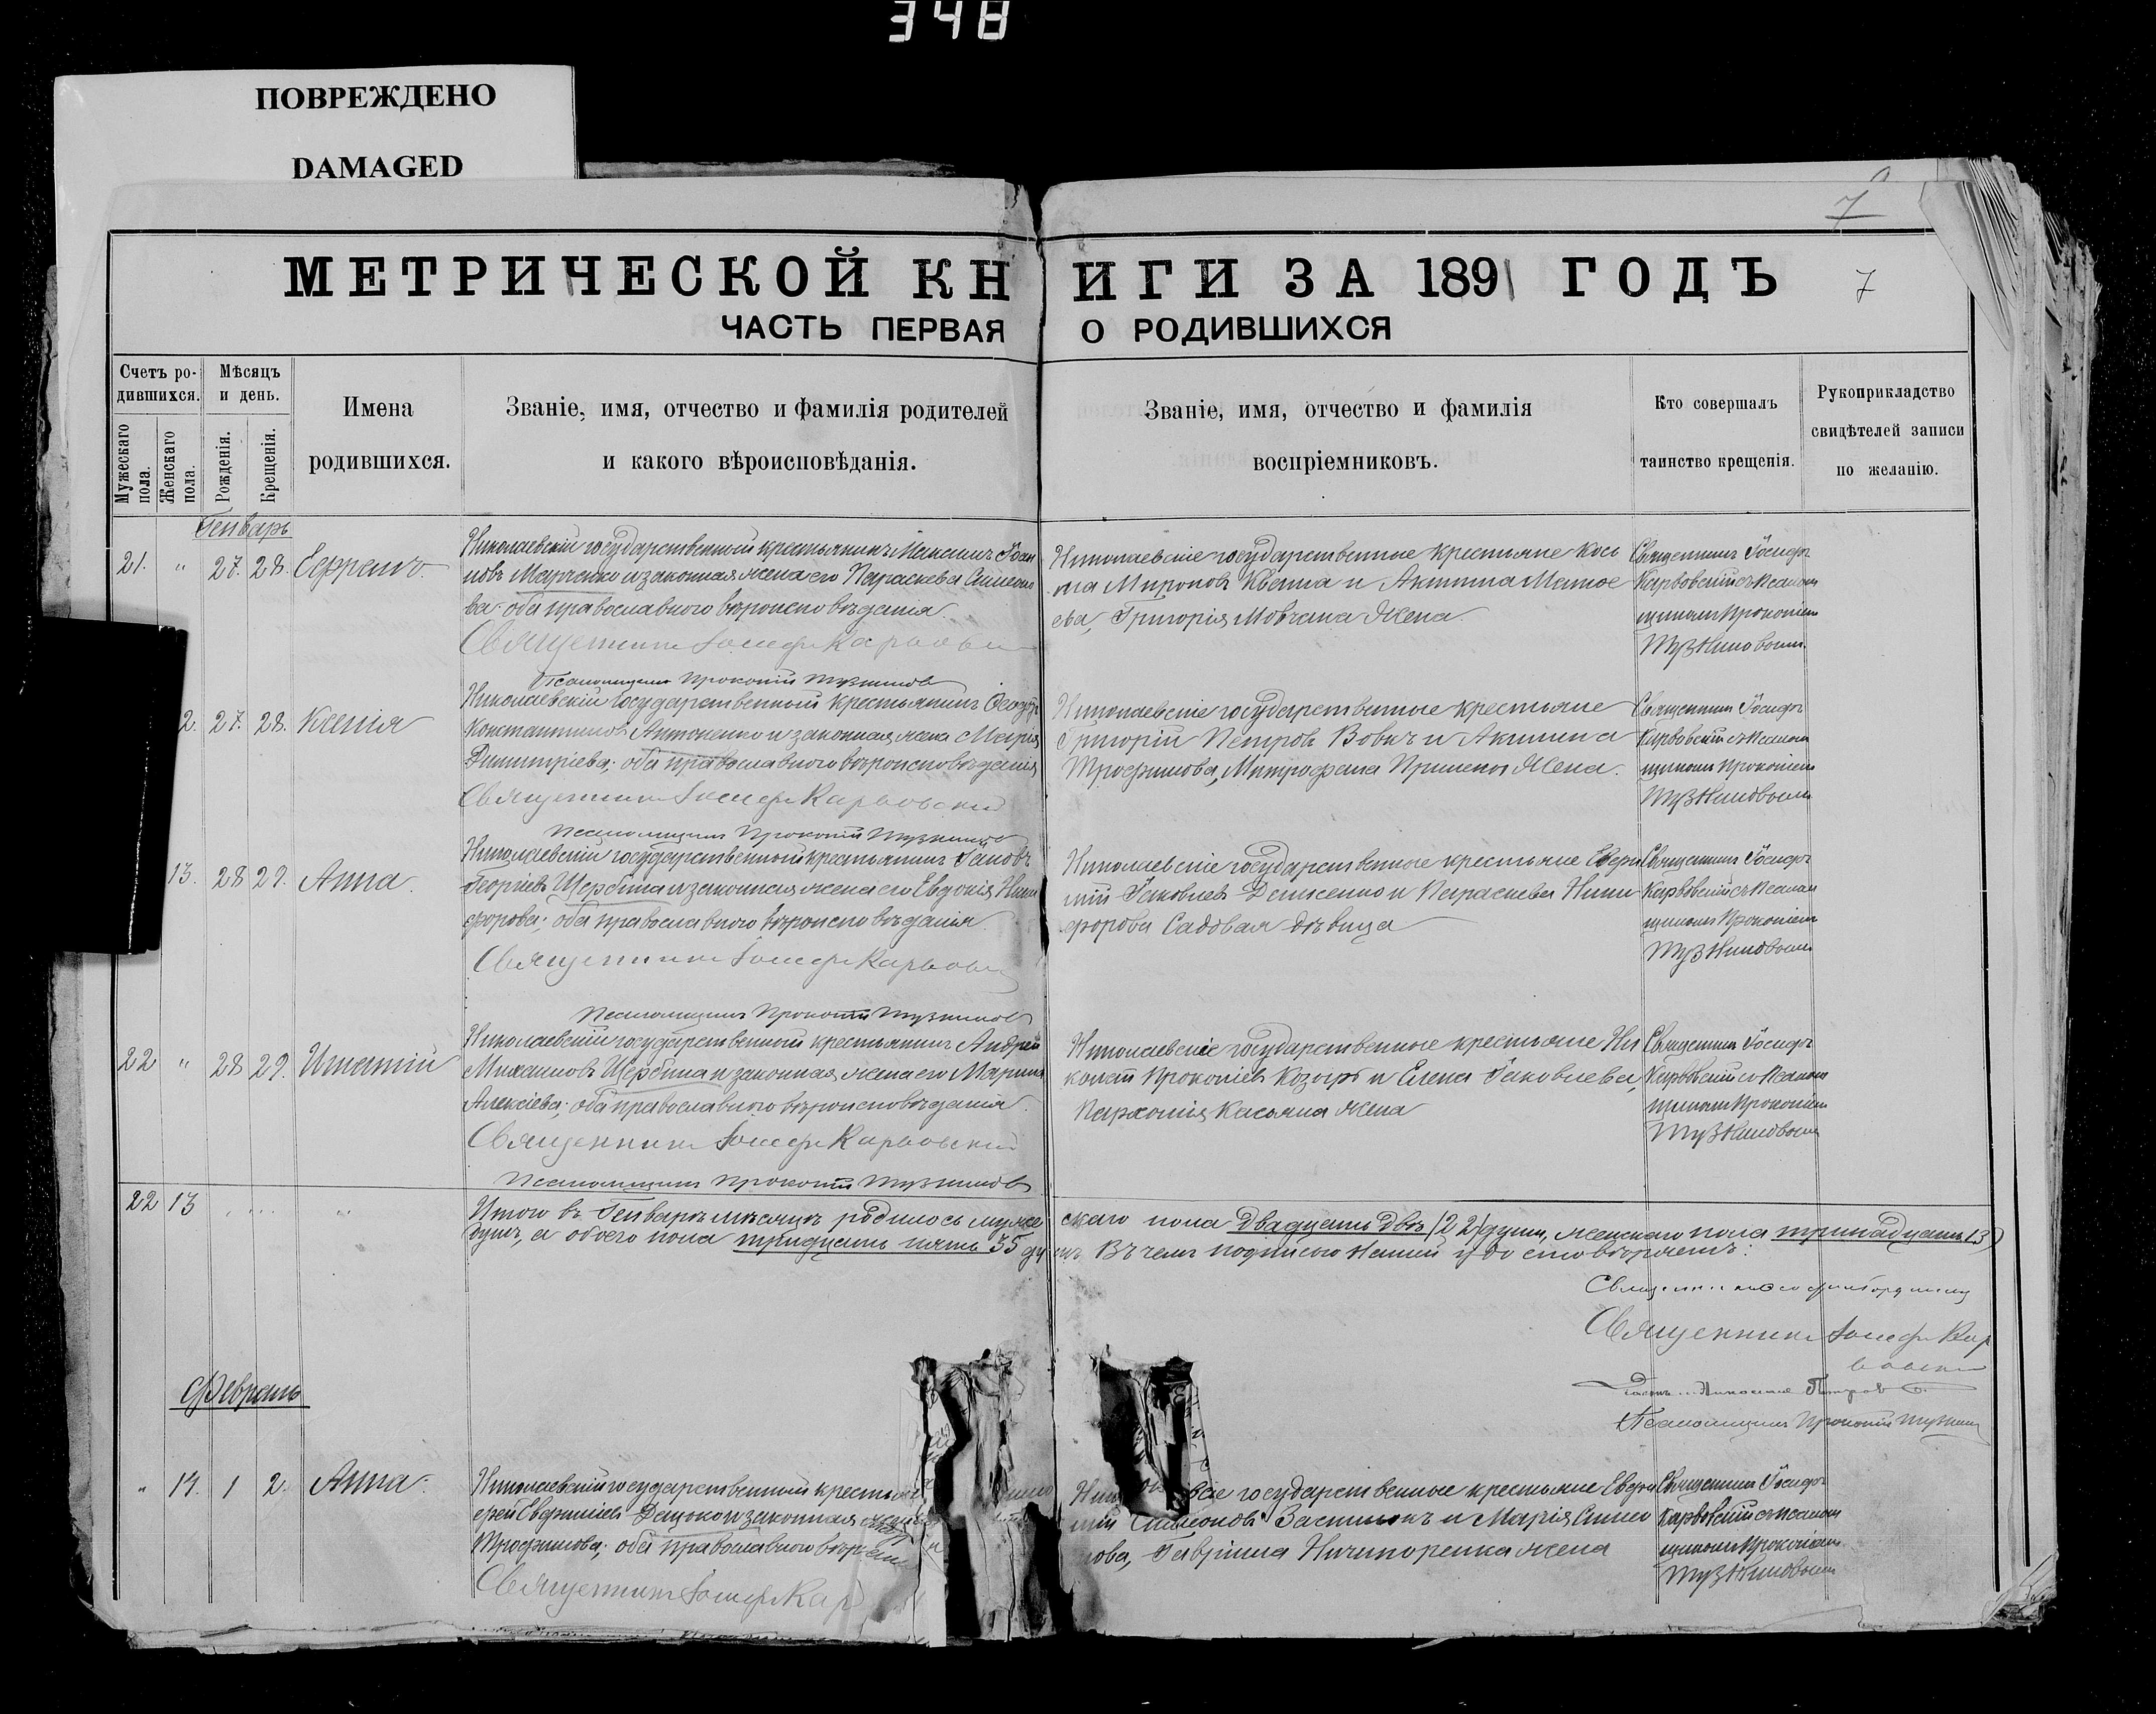 348
ПОВРЕЖДЕНО
DAMAGED
7
МЕТРИЧЕСКОЙ КНИГИ ЗА 1891 ГОДЪ
7
ЧАСТЬ ПЕРВАЯ О РОДИВШИХСЯ
Счетъ родившихся.
Мужескаго пола.
Женскаго пола.
Мѣсяцъ и день.
Рожденія.
Крещенія.
Имена родившихся.
Званіе, имя, отчество и фамилія родителей
и какого вѣроисповѣданія.
Званіе, имя, отчество и фамилія
воспріемниковъ.
Кто совершалъ
таинство крещенія.
Рукоприкладство
свидѣтелей записи
по желанію.
Генварь
21. " 27. 28. Ефремъ.
Николаевскій государственный крестьянинъ Максимъ Іоан
новъ Марченко и законная жена его Параскева Симеоно
ва; оба православного вѣроисповѣданія.
Священникъ Іосифъ Карповс
Псаломщикъ Прокопій Тузниковъ
Николаевскіе государственные крестьяне Кось
ма Мироновъ Квятка и Акилина Матѳе
ева, Григорія Мовчана жена.
Священникъ Іосифъ
Карповскій съ псалом
щикомъ Прокопіемъ
Тузниковымъ.
2. 27. 28. Ксенія
Николаевскій государственный крестьянинъ Ѳеодоръ
Константиновъ Антоненко и законная жена Марія
Димитріева; оба православного вѣроисповѣданія
Священникъ Іосифъ Карповскій
Псаломщикъ Прокопій Тузниковъ
Николаевскіе государственные крестьяне
Григорій Петровъ Вовкъ и Акилина
Трофимова, Митрофана жена.
Священникъ Іосифъ
Карповскій съ псалом
щикомъ Прокопіемъ
Тузниковымъ
13. 28 29. Анна.
Николаевскій государственный крестьянинъ Іаковъ
Георгіевъ Щербина и законная жена его Евдокія Ники
форова; оба православного вѣроисповѣданія.
Священникъ Іосифъ Карповс
Псаломщикъ Прокопій Тузниковъ
Николаевскіе государственные крестьяне Евфи
мій Іаковлевъ Денисенко и Параскева Ники
форова Садовая дѣвица
Священникъ Іосифъ
Карповскій съ псалом
щикомъ Прокопіемъ
Тузниковымъ
22 " 28 29. Игнатій
Николаевскій государственный крестьянинъ Андрей
Михаиловъ Щербина и законная жена его Марина
Алексіева; оба православного вѣроисповѣданія.
Священникъ Іосифъ Карповскій
Псаломщикъ Прокопій Тузниковъ
Николаевскіе государственные крестьяне Ни
колай Прокопіевъ Козырь и Елена Іаковлева,
Пархомія Касьяна жена
Священникъ Іосифъ
Карповскій съ псалом
щикомъ Прокопіемъ
Тузниковымъ
22 13
Итого въ Генварѣ мѣсяцѣ родилось муже скаго пола двадцать двѣ (22) души, женскаго пола тринадцать 13)
душъ, а обоего пола тридцать пять 35 ду шъ Въ чемъ подписомъ нашимъ удостовѣряемъ:
Священникъ Іосифъ Кар
повскій
Николай Петровъ
Псаломщикъ Прокопій Тузник
Февраль
" 14. 1 2. Анна.
Николаевскій государственный крестьян
Евфиміевъ Дацюко и законная жена
Трофимова; оба православного вѣро
Священникъ Іосифъ Кар
государственные крестьяне Евфи
мій Симеоновъ и Марія Симео
нова, Гавріила Ничипоренка жена
Священникъ Іосифъ
Карповскій съ псалом
щикомъ Прокопіемъ
Тузниковымъ